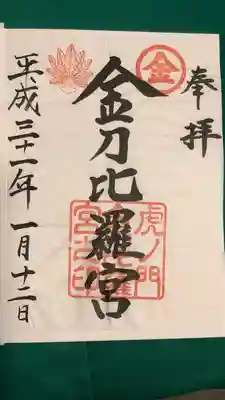 奉拝
金
金刀比羅宮
虎ノ門
宮之印
平成三十一年一月十二日